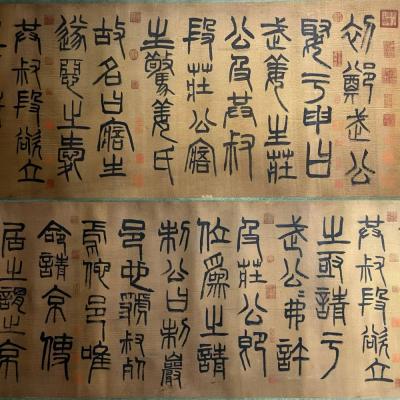 初鄭武公
娶于申曰
武姜生莊
公及共叔
段莊公寤
生驚姜氏
故名曰寤生
遂惡之愛
共叔段欲立
共叔段欲立
之亟請于
武公弗許
及莊公即
位為之請
制公曰制巖
邑也虢叔死
焉佗邑唯
命請京使
居之謂之京